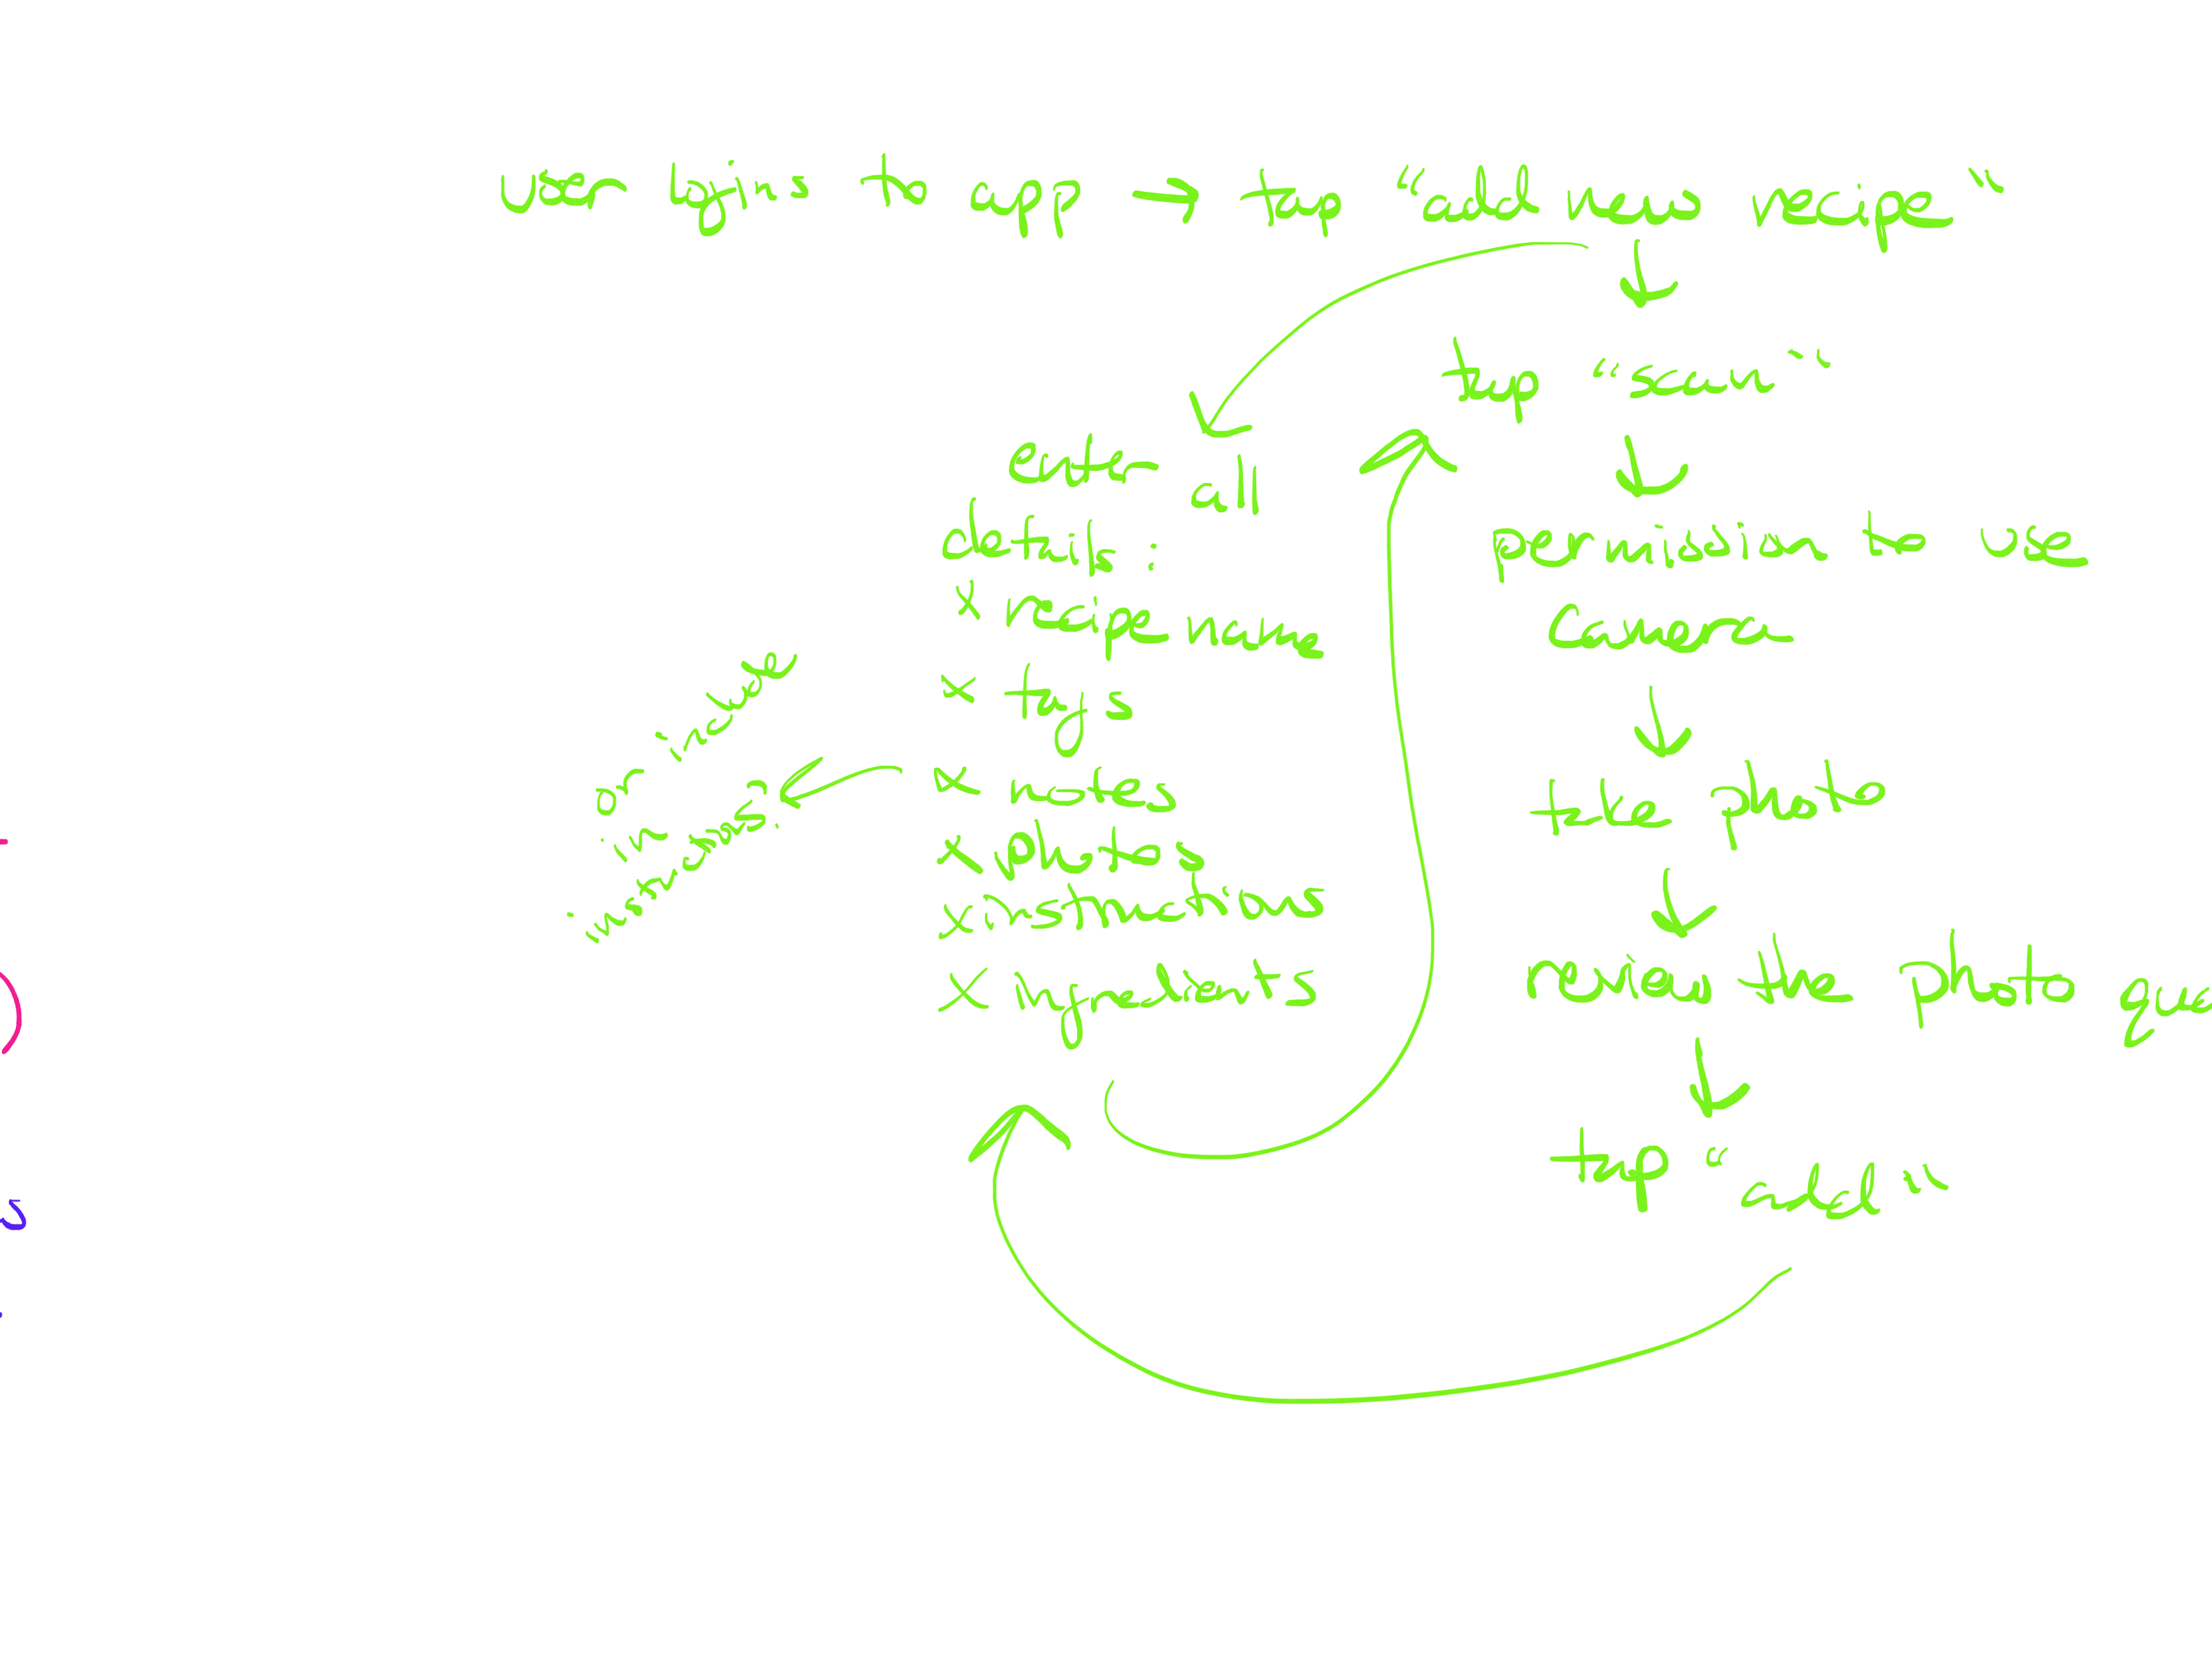 user logins to app → tap "add new recipe"
tap "scan"
permission to use
camera
take photo
review the photo
tap "add"
enter all
details:
x recipe name
x tags
x notes
x photos
x instructions
x ingredients
or include
in
instructions?